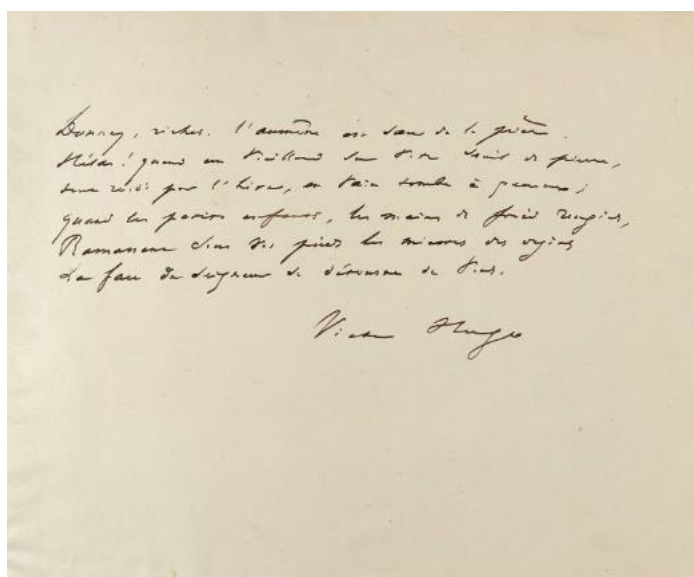 Donnez, riches. l'aumône est sœur de la prière.
Hélas! quand un vieillard sur votre seuil de pierre,
tout roidi par l'hiver, en vain tombe à genoux;
quand les petits enfants, les mains de froid rougies,
Ramassent sous vos pieds les miettes des orgies
La face du seigneur se détourne de vous.
Victor Hugo